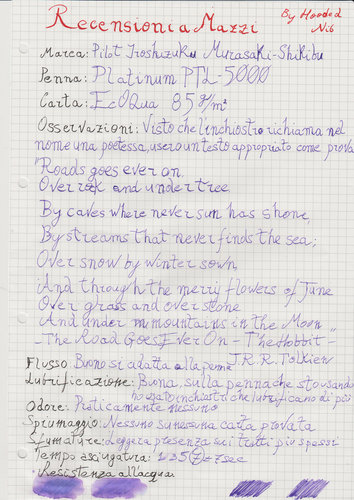 Recensioni a Mazzi
By Hooded
Nib
Marca: Pilot Iroshizuku Murasaki-Shikibu
Penna: Platinum PTL-5000
Carta: EcOQua 85 g/m²
Osservazioni: Visto che l'inchiostro richiama nel
nome una poetessa, userò un testo appropriato come prova
"Roads goes ever on,
Over rock and under tree
By caves where never sun has shone,
By streams that never finds the sea;
Over snow by winter sown,
And through the merry flowers of June
Over grass and over stone
And under mmountains in the Moon"
-The Road Goes Ever On - The Hobbit -
J.R.R. Tolkien
Flusso: Buono si adatta alla penna
Lubrificazione: Buona, sulla penna che sto usando
ho usato inchiostri che lubrificano di più
Odore: Praticamente nessuno
Spiumaggio: Nessuno su nessuna carta provata
Sfumature: Leggera presenza sui tratti più spessi
Tempo asciugatura: 1 3 5 7 = 7sec
Resistenza all'acqua: